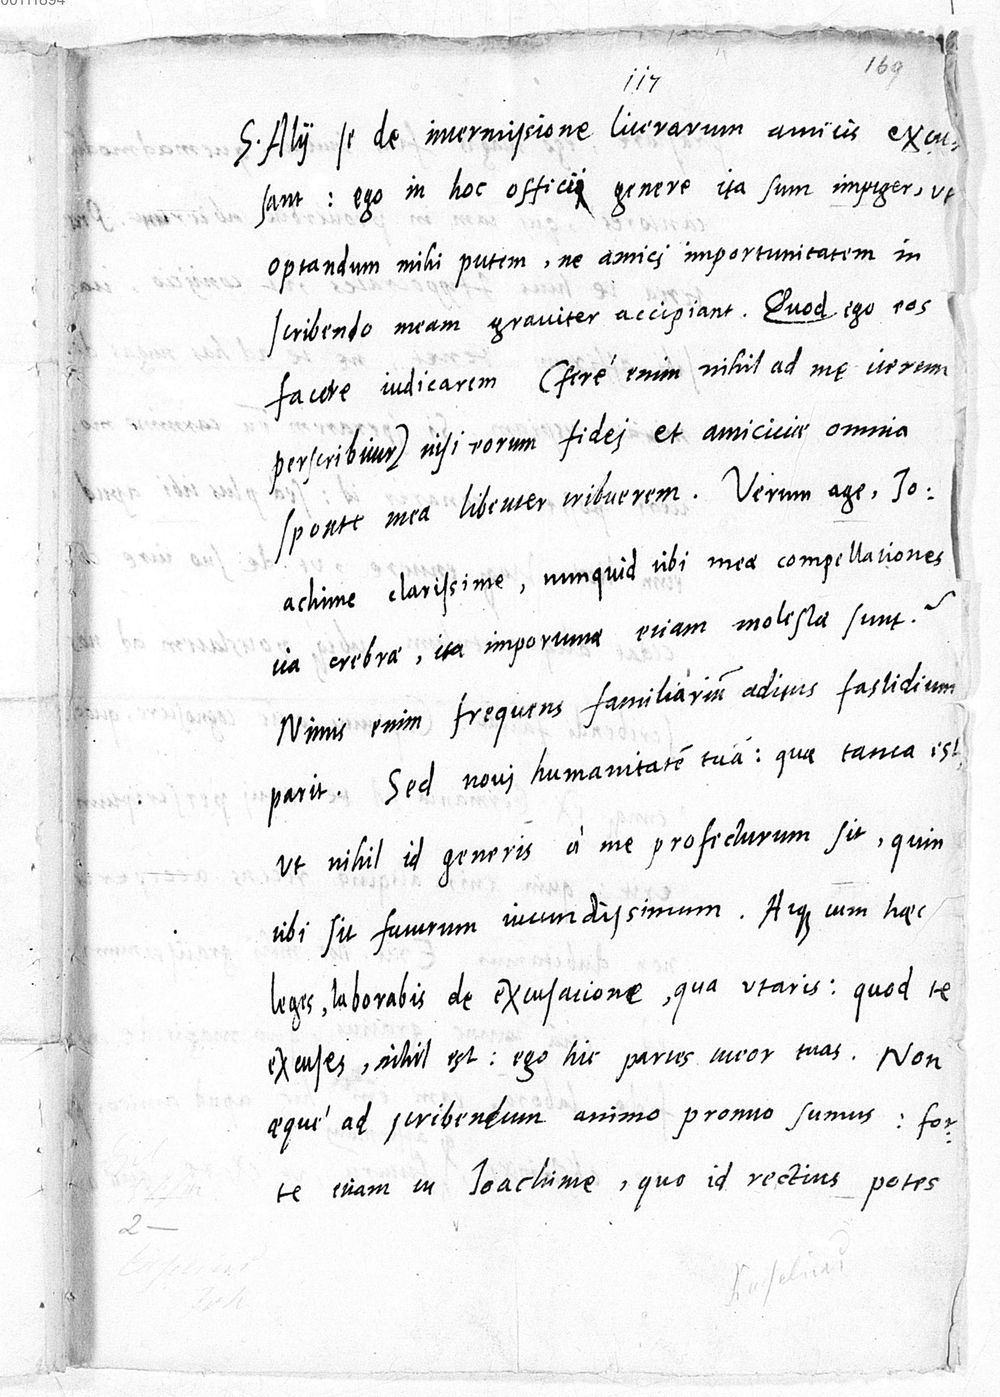 00111894
169
117
S. Alij se de intermissione literarum amicis excu-
sant : ego in hoc officij genere ita sum impiger, ut
optandum mihi putem , ne amici importunitatem in
scribendo meam graviter accipiant . Quod ego eos
facere iudicarem (ferè enim nihil ad me iterum
perscribitur) nisi eorum fidej et amicitiæ omnia
sponte mea libenter tribuerem . Verum age, Jo-:
achime clarissime , numquid tibi meæ compellationes
ita crebræ , ita importunæ etiam molestæ sunt .~
Nimis enim frequens familiariū aditus fastidium
parit . Sed novj humanitatē tuā : quæ tanta est,
ut nihil id generis à me profecturum sit , quin
tibi sit futurum iucundissimum . Atq; cum hæc
leges, laborabis de excusatione , qua utaris : quod te
excuses , nihil est : ego hic partes tueor tuas . Non
æquè ad scribendum animo prompto sumus : for-
te etiam tu Joachime , quo id rectius potes
2 —